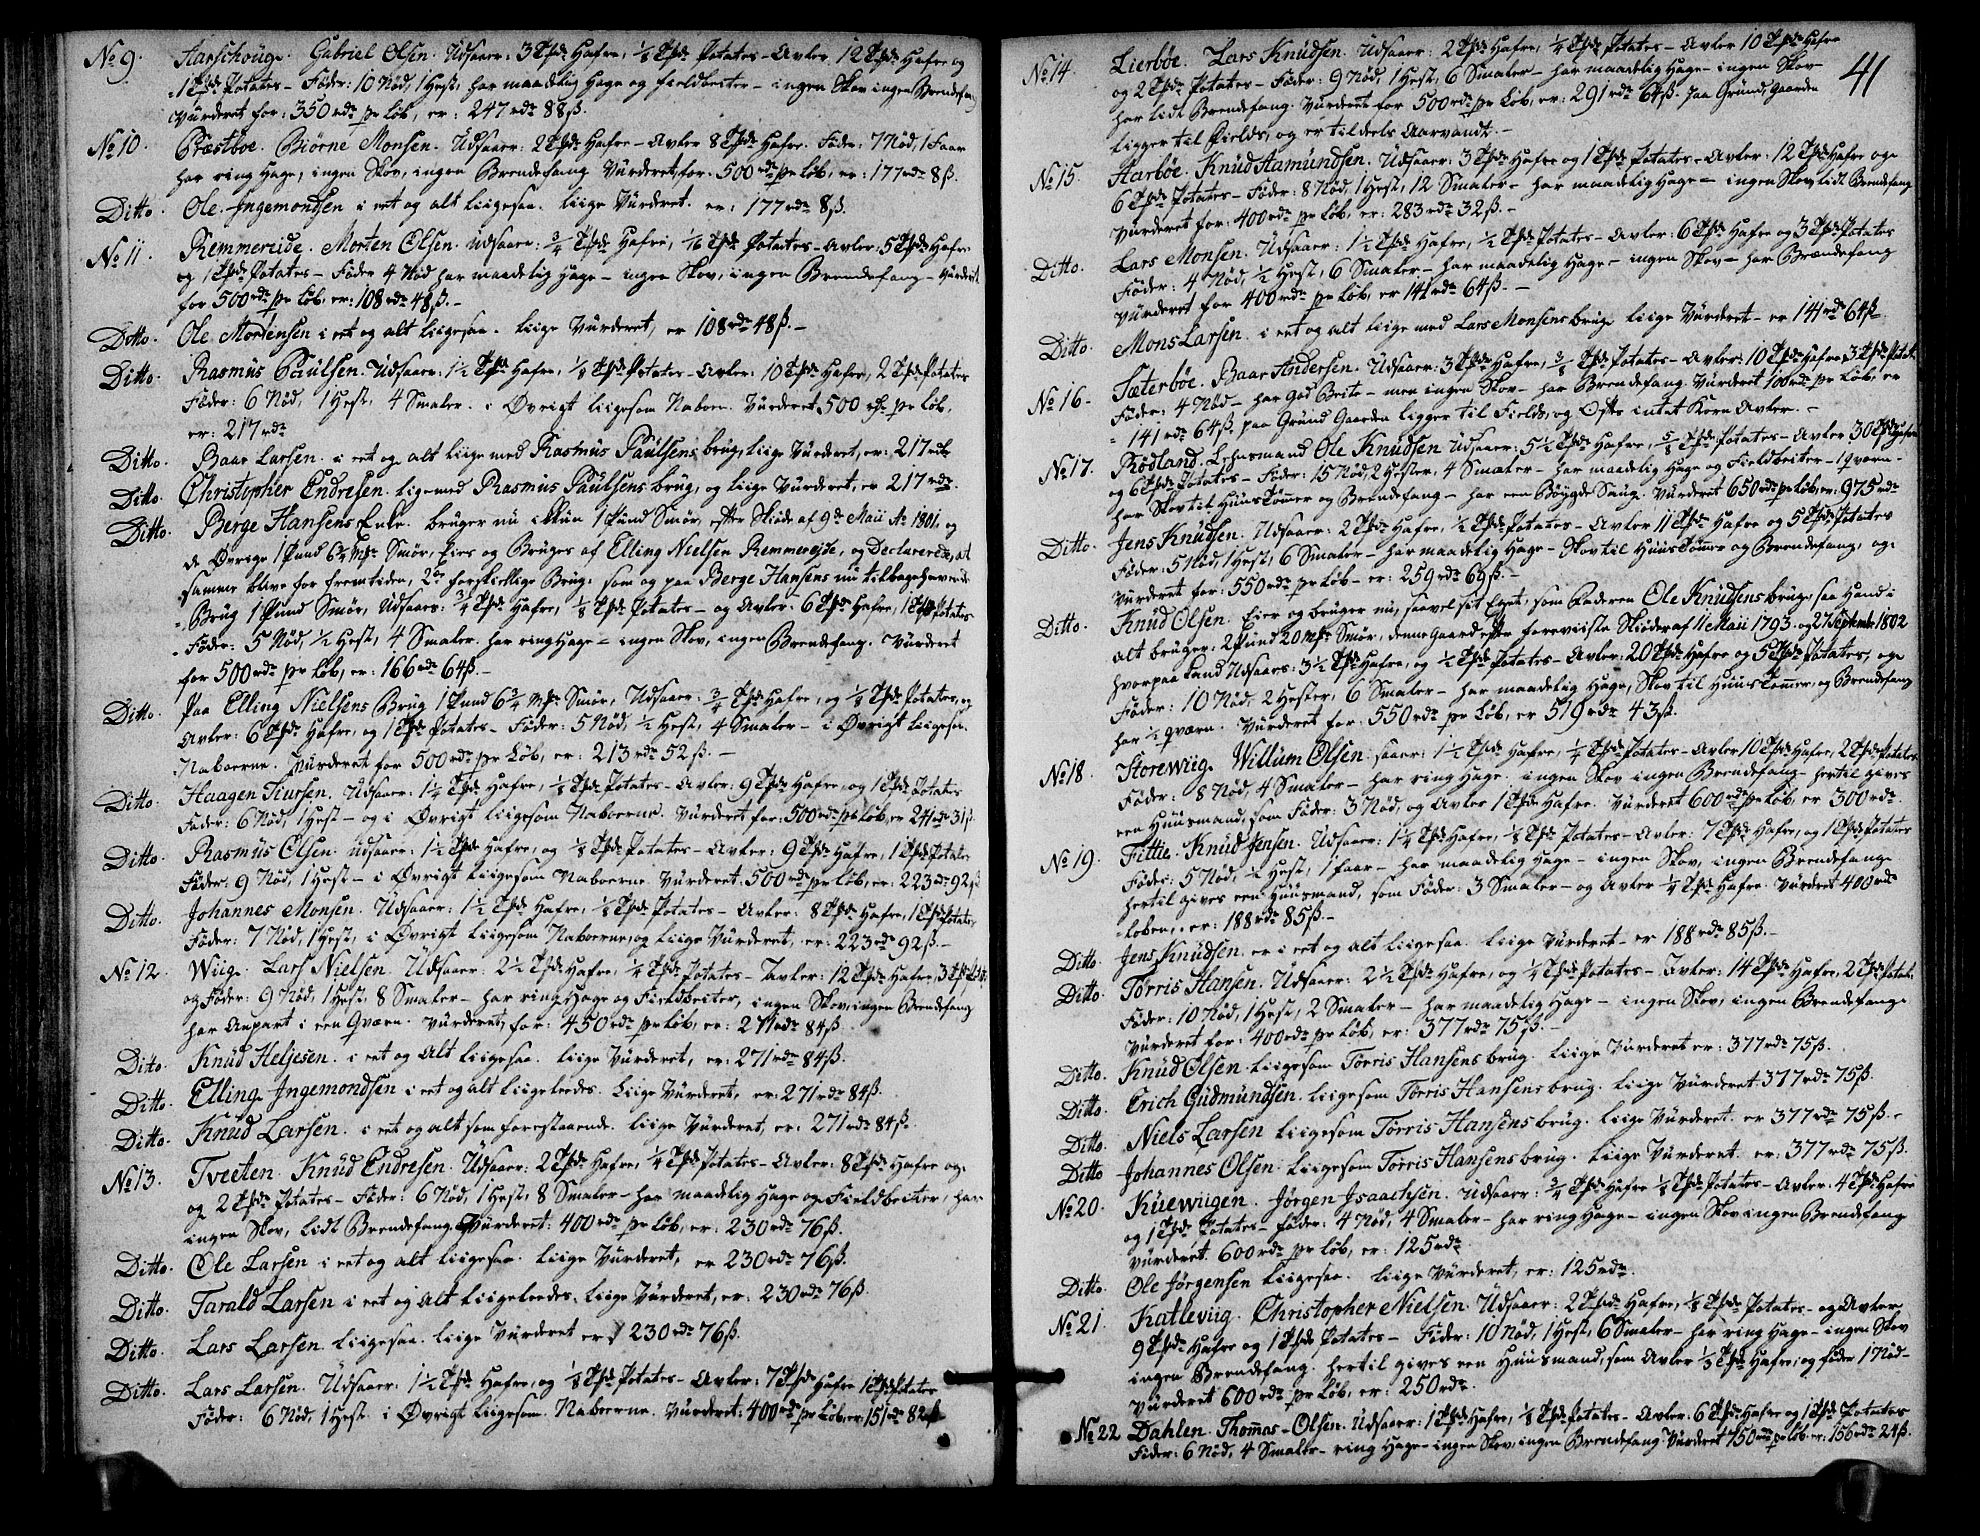 No 9. Aarschouge. Gabriel Olsen. Udsaaer: 3 Tde Hafre, 1/8 Tde Potates - Avler 12 Tde Hafre og
1 Tde Potates - Føder: 10 Nød, 1 Hest, har maadelig Hage og fieldbeiter - ingen Skov ingen Brendefang
Vurderet for: 350 rdr pr Løb, er: 247 rdr 88 ß.
No 10. Præstbøe. Biørne Monsen. Udsaaer: 2 Tde Hafre - Avler 8 Tde Hafre. Føder: 7 Nød, 1 Faar
har ring Hage, ingen Skov, ingen Brendefang Vurderet for 500 rdr pr Løb, er: 177 rdr 8 ß.
Ditto. Ole Ingemondsen i eet og alt liigesaa. liige Vurderet. er: 177 rdr 8 ß.
No 11. Remmereide. Morten Olsen. Udsaaer: 3/4 Tde Hafre, 1/16 Tde Potates - Avler: 5 Tde Hafre
og 1 Tde Potates - Føder 4 Nød har maadelig Hage - ingen Skov, ingen Brendefang - Vurderet
for 500 rdr pr Løb, er: 108 rdr 48 ß. -
Ditto. Ole Mortensen i eet og alt liigesaa. liige Vurderet, er 108 rdr 48 ß. -
Ditto. Rasmus Paulsen. Udsaaer: 1 1/2 Tde Hafre, 1/8 Tde Potates - Avler: 10 Tde Hafre, 2 Tde Potates
Føder: 6 Nød, 1 Hest, 4 Smaler. i Øvrigt liigesom Naboen. Vurderet 500 rdr pr Løb,
er: 217 rdr
Ditto. Baar Larsen. i eet og alt liige med Rasmus Paulsens brug, liige Vurderet, er: 217 rdr
Ditto. Christopher Endresen. lige med Rasmus Paulsens brug, og liige Vurderet, er 217 rdr.
Ditto. Berge Hansens Enke. bruger nu ikkun 1 Pund Smør, efter Skiøde af 9de Maii Ao 1801. og
de Øvrige 1 Pund 6 3/4 Mk Smør, Eies og Bruges af Elling Nielsen Remmereide, og Declarerede, at
samme blive for fremtiden, 2de forskiellige Brug. som og paa Berge Hansens nu tilbagehavende
Brug 1 Pund Smør, Udsaaes: 3/4 Tde Hafre, 1/8 Tde Potates - og Avler: 6 Tde Hafre, 1 Tde Potates
Føder: 5 Nød, 1/2 Hest, 4 Smaler. har ring Hage - ingen Skov, ingen Brendefang. Vurderet
for 500 rdr pr Løb, er: 166 rdr 64 ß. -
Ditto. Paa Elling Nielsens Brug 1 Pund 6 3/4 Mk Smør, Udsaaer: 3/4 Tde Hafre, og 1/8 Tde Potates, og
Avler: 6 Tde Hafre, og 1 Tde Potates - Føder: 5 Nød, 1/2 Hest, 4 Smaler - i Øvrigt liigesom
Naboerne. Vurderet for 500 rdr pr Løb, er: 213 rdr 52 ß. -
Ditto. Haagen Siursen. Udsaaer: 1 1/4 Tde Hafre, 1/8 Tde Potates - Avler: 9 Tde Hafre, og 1 Tde Potates
Føder: 6 Nød, 1 Hest - og i Øvrigt liigesom Naboerne. Vurderet for: 500 rdr pr Løb, er 241 rdr 31 ß.
Ditto. Rasmus Olsen. udsaaer: 1 1/2 Tde Hafre, og 1/8 Tde Potates - Avler: 9 Tde Hafre, 1 Tde Potates
Føder: 9 Nød, 1 Hest - i Øvrigt liigesom Naboerne. Vurderet: 500 rdr pr Løb, er: 223 rdr 92 ß
Ditto. Johannes Monsen. Udsaaer: 1 1/2 Tde Hafre, 1/8 Tde Potates - Avler: 8 Tde Hafre, 1 Tde Potates
Føder: 7 Nød, 1 Hest, i Øvrigt liigesom Naboerne, og liige Vurderet, er: 223 rdr 92 ß. -
No 12. Wiig. Lars Nielsen. Udsaaer: 2 1/2 Tde Hafre, 1/4 Tde Potates - Avler: 12 Tde Hafre, 3 Tde Potates
og Føder: 9 Nød, 1 Hest, 8 Smaler - har ring Hage og Fieldbeiter, ingen Skov, ingen Brendefang
har Anpart i een Qværn. Vurderet, for: 450 rdr pr Løb, er: 271 rdr 84 ß.
Ditto. Knud Heljesen. i eet og Alt liigesaa. liige Vurderet, er: 271 rdr 84 ß.
Ditto. Elling Ingemondsen i eet og alt liigeleedes. Liige Vurderet, er: 271 rdr 84 ß.
Ditto. Knud Larsen. i eet og alt som forestaaende. liige Vurderet, er: 271 rdr 84 ß.
No 13. Tveeten. Knud Endresen. Udsaaer: 2 Tde Hafre, 1/4 Tde Potates - Avler: 8 Tde Hafre og
og 2 Tde Potates - Føder: 6 Nød, 1 Hest, 8 Smaler - har maadelig Hage og Fieldbeiter, har
ingen Skov, Lidt Brendefang. Vurderet: 400 rdr pr Løb, er: 230 rdr 76 ß.
Ditto. Ole Larsen i eet og alt liigesaa. liige Vurderet, er 230 rdr 76 ß.
Ditto. Tarald Larsen i eet og Alt liigeleedes. Liige Vurderet, er: 230 rdr 76 ß.
Ditto. Lars Larsen. liigesaa. liige Vurderet er 230 rdr 76 ß.
Ditto. Lars Larsen. Udsaaer: 1 1/2 Tde Hafre, og 1/8 Tde Potates - Avler: 7 Tde Hafre 1 Tde Potates
Føder: 6 Nød, 1 Hest i Øvrigt liigesom Naboerne. Vurderet: 400 rdr pr Løb, er: 151 rdr 82 ß
41
No 14. Lierbøe. Lars Knudsen. Udsaaer: 2 Tde Hafre, 1/4 Tde Potates - Avler 10 Tde Hafre
og 2 Tde Potates - Føder: 9 Nød, 1 Hest, 6 Smaler - har maadelig Hage - ingen Skov
har lidt Brendefang. Vurderet for 500 rdr pr Løb, er: 291 rdr 64 ß. paa Grund Gaarden
ligger til Fields, og er tildeels Aarvandt. -
No 15. Harbøe. Knud Aamundsen. Udsaaer: 3 Tde Hafre og 1 Tde Potates - Avler: 12 Tde Hafre og
6 Tde Potates - Føder: 8 Nød, 1 Hest, 12 Smaler - har maadelig Hage - ingen Skov lidt Brendefang
Vurderet for: 400 rdr pr Løb, er: 283 rdr 32 ß. -
Ditto. Lars Monsen. Udsaaer: 1 1/2 Tde Hafre, 1/2 Tde Potates - Avler: 6 Tde Hafre og 3 Tde Potates
Føder: 4 Nød, 1/2 Hest, 6 Smaler - har maadelig Hage - ingen Skov - har Brændefang
Vurderet for 400 rdr pr Løb, er 141 rdr 64 ß. -
Ditto. Mons Larsen. i eet og alt liige med Lars Monsens brug liige Vurderet - er 141 rdr 64 ß
No 16 - Sæterbøe. Baar Andersen. Udsaaer: 3 Tde Hafre, 3/8 Tde Potates - Avler: 10 Tde Hafre, 3 Tde Potat.
Føder: 4 Nød - har god Beite - men ingen Skov - har Brendefang Vurderet 100 rdr pr Løb. er
141 rdr 64 ß. paa Grund Gaarden ligger til Fields, og Ofte intet Korn Avler. -
No 17. Rødland. Lehnsmand Ole Knudsen Udsaaer: 5 1/2 Tde Hafre, 5/8 Tde Potates - Avler 30 Tde Hafre
og 6 Tde Potates - Føder: 15 Nød, 2 Hester, 4 Smaler - har maadelig Hage og Fieldbeiter - 1 qværn -
har Skov til Huustømer og Brendefang - har een Bøygde Saug. Vurderet 650 rdr pr Løb, er: 975 rdr
Ditto. Jens Knudsen. Udsaaer: 2 Tde Hafre, 1/2 Tde Potates - Avler 11 Tde Hafre og 5 Tde Potates
Føder: 5 Nød, 1 Hest, 6 Smaler - har maadelig Hage - Skov til Huustømer og Brendefang, og
Vurderet for: 550 rdr pr Løb - er: 259 rdr 69 ß. -
Ditto. Knud Olsen. Eier og bruger nu, saavel sit Eget, som Faderen Ole Knudsens brug, saa Hand i
alt bruger: 2 Pund 20 Mk Smør, denne Gaard efter foreviiste Skiøder af 11 Maii 1793. og 27 September 1802
hvorpaa Hand Udsaaer: 3 1/2 Tde Hafre, og 1/2 Tde Potates - Avler: 20 Tde Hafre og 5 Tde Potates, og
Føder: 10 Nød, 2 Hester, 6 Smaler - har maadelig Hage, Skov til Huustømer, og Brendefang
har 1/2 qværn. Vurderet for: 550 rdr pr Løb, er 519 rdr 43 ß.
No 18. Storewiig. Willum Olsen. saaer: 1 1/2 Tde Hafre, 1/4 Tde Potates - Avler 10 Tde Hafre, 2 Tde Potates
Føder: 8 Nød, 4 Smaler - har ring Hage. ingen Skov ingen Brendefang - hertil gives
een Huusmand, som Føder: 3 Nød, og Avler 1 Tde Hafre. Vurderet 600 rdr pr Løb, er 300 rdr.
No 19. Fittie. Knud Jensen. Udsaaer: 1 1/4 Tde Hafre, 1/8 Tde Potates - Avler: 7 Tde Hafre, og 1 Tde Potates
Føder: 5 Nød, 1/2 Hest, 1 faar - har maadelig Hage - ingen Skov, ingen Brendefang
hertil gives een Huusmand, som Føder: 3 Smaler - og Avler 1/4 Tde Hafre. Vurderet 400 rdr
Løben, er: 188 rdr 85 ß. -
Ditto. Jens Knudsen. er i eet og alt liigesaa. liige Vurderet - er 188 rdr 85 ß. -
Ditto. Torris Hansen. Udsaaer: 2 1/2 Tde Hafre, og 1/4 Tde Potates - Avler: 14 Tde Hafre, 2 Tde Potat.
Føder: 10 Nød, 1 Hest, 2 Smaler - har maadelig Hage - ingen Skov, ingen Brendefang
Vurderet for: 400 rdr pr Løb, er: 377 rdr 75 ß. -
Ditto. Knud Olsen liigesom Torris Hansens brug. liige Vurderet er: 377 rdr 75 ß.
Ditto. Erich Gudmundsen. liigesom Torris Hansens brug. liige Vurderet 377 rdr 75 ß.
Ditto. Niels Larsen liigesom Torris Hansens brug. liige Vurderet. er 377 rdr 75 ß. -
Ditto Johannes Olsen. liigesom Torris Hansens brug. liige Vurderet. er: 377 rdr 75 ß.
No 20. Kuewiigen. Jørgen Isaachsen. Udsaaer: 3/4 Tde Hafre 1/8 Tde Potates - Avler: 4 Tde Hafre
og 1 Tde Potates - føder: 4 Nød, 4 Smaler - har ring Hage - ingen Skov ingen Brendefang
vurderet. 600 rdr pr Løb, er: 125 rdr.
Ditto. Ole Jørgensen liigesaa. liige Vurderet, er: 125 rdr.
No 21. Katleviig. Christopher Nielsen. Udsaaer: 2 Tde Hafre, 1/8 Tde Potates - og Avler
9 Tde Hafre og 1 Tde Potates - Føder: 10 Nød, 1 Hest, 6 Smaler - har ring Hage - ingen Skov
ingen Brendefang. hertil gives een Huusmand, som Avler 1/3 Tde Hafre, og føder 1 Nød -
Vurderet 600 rdr pr Løb, er: 250 rdr.
No 22 Dahlen. Thomas Olsen. Udsaaer: 1 Tde Hafre, 1/8 Tde Potates - Avler: 6 Tde Hafre og 1 Tde Potates
Føder: 6 Nød, 4 Smaler - ring Hage - ingen Skov, ingen Brendefang Vurderet 750 rdr pr Løb. er: 156 rdr 24 ß.